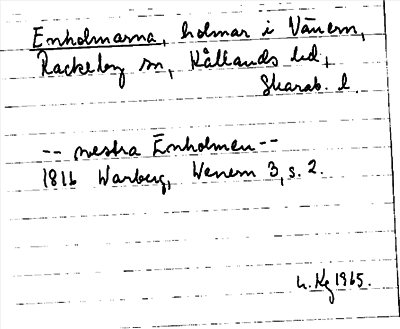 Enholmarna, holmar i Vänern,
Rackeby sn, Kållands hd,
Skarab. l.
-- westra Enholmen --
1816 Warberg, Wenern 3, s. 2.
1965.